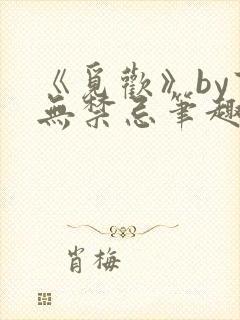 《覓歡》by
無禁忌筆趣
肖梅